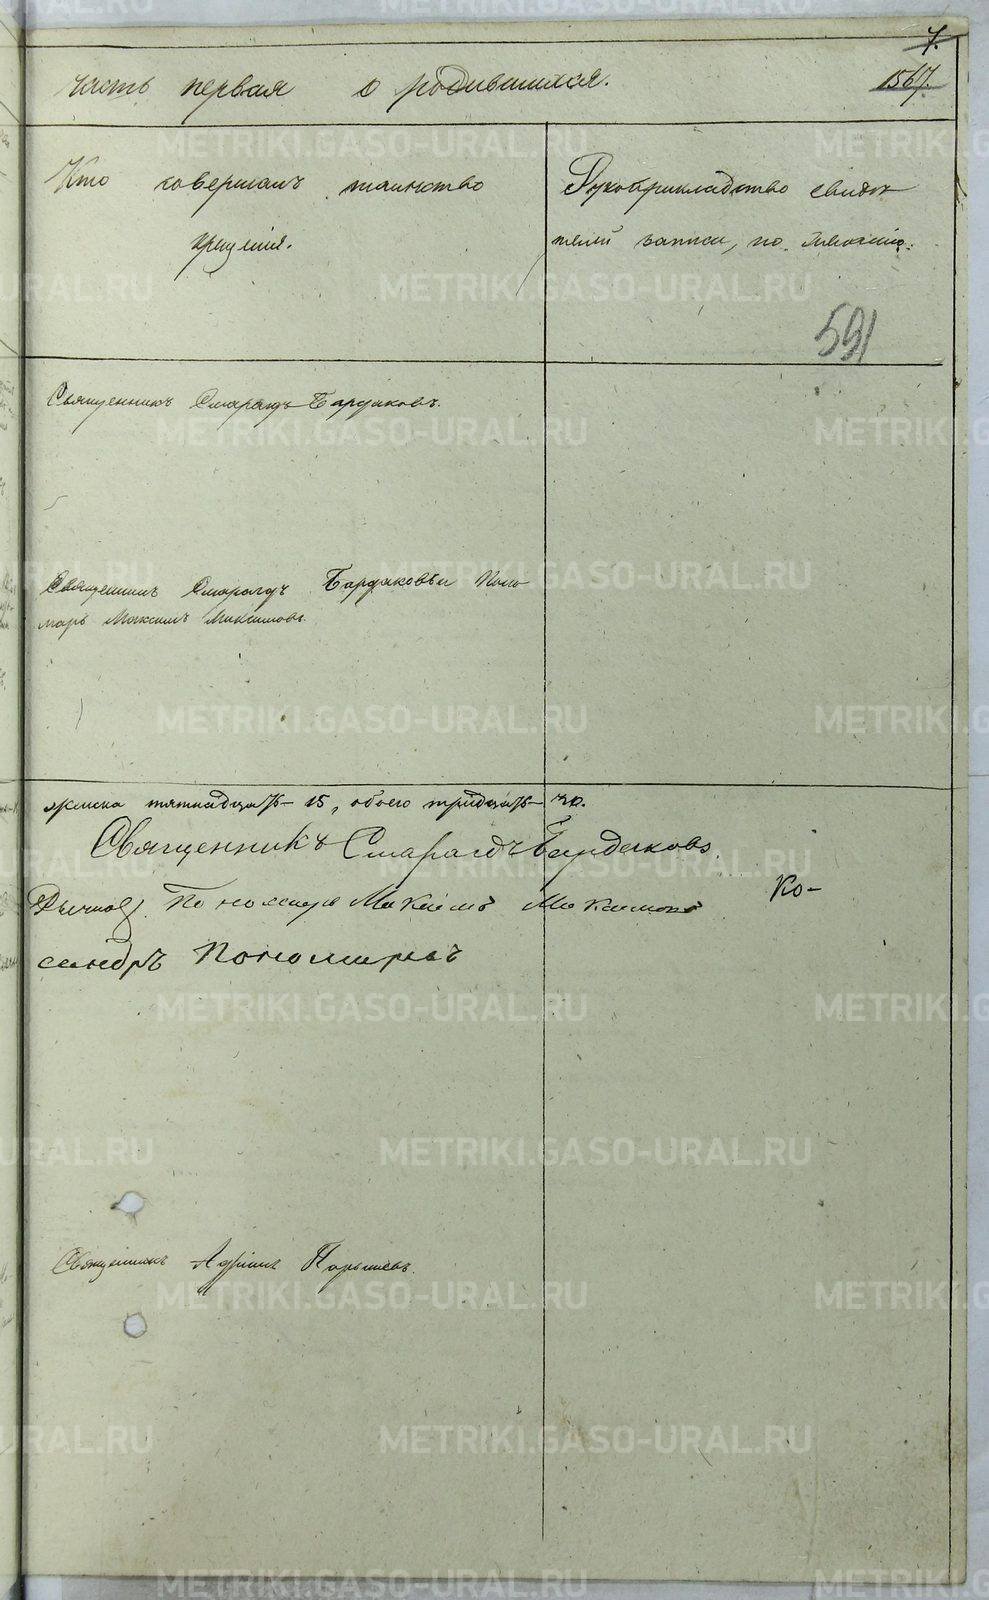 7.
часть первая о родившихся.
1567.
Кто совершалъ таинство
крещенія.
Рукоприкладство свидѣ
телей записи, по желанію:
591
Священникъ Смарагдъ Бардаковъ.
Священникъ Смарагдъ Бардаковъ и Поно
марь Максимъ Максимовъ.
женска пятнадцать 15, обоего тридцать 30.
Священникъ Смарагдъ Бардаковъ
Пономарь Максимъ Максимовъ Ко-
сандръ Пономаревъ
Священникъ Адріанъ
METRIKI.GASO-URAL.RU